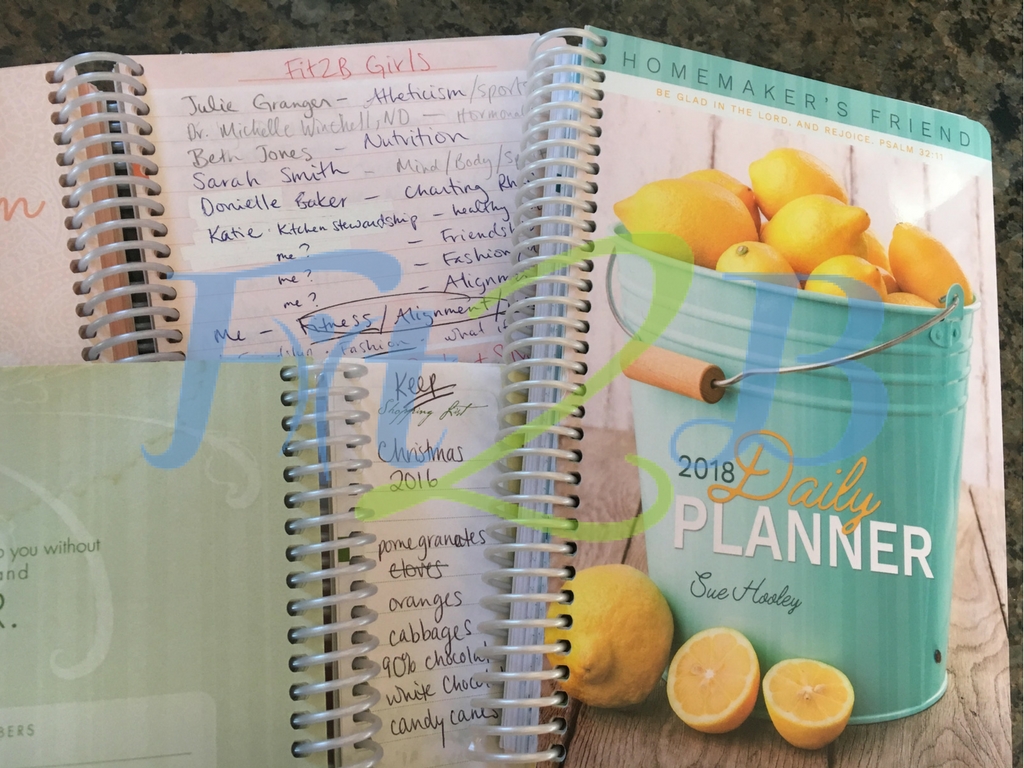 Fit2B Girls
Julie Granger - Athleticism/sport
Dr. Michelle Winchell, ND - Hormonal
Beth Jones - Nutrition
Sarah Smith - Mind/Body/
Donielle Baker - Charting
Katie · Kitchen Stewardship - healthy
me? - Friendsh
me? - Fashion
me? - Alignm
Me - Fitness/Alignment/
Fashion what
Keep
Shopping List
Christmas
2016
pomegranates
cloves
oranges
cabbages
90% chocola
white choc
candy canes
o you without
and
BERS
HOMEMAKER'S FRIEND
BE GLAD IN THE LORD, AND REJOICE. PSALM 32:11
2018 Daily
PLANNER
Sue Hooley
Fit2B